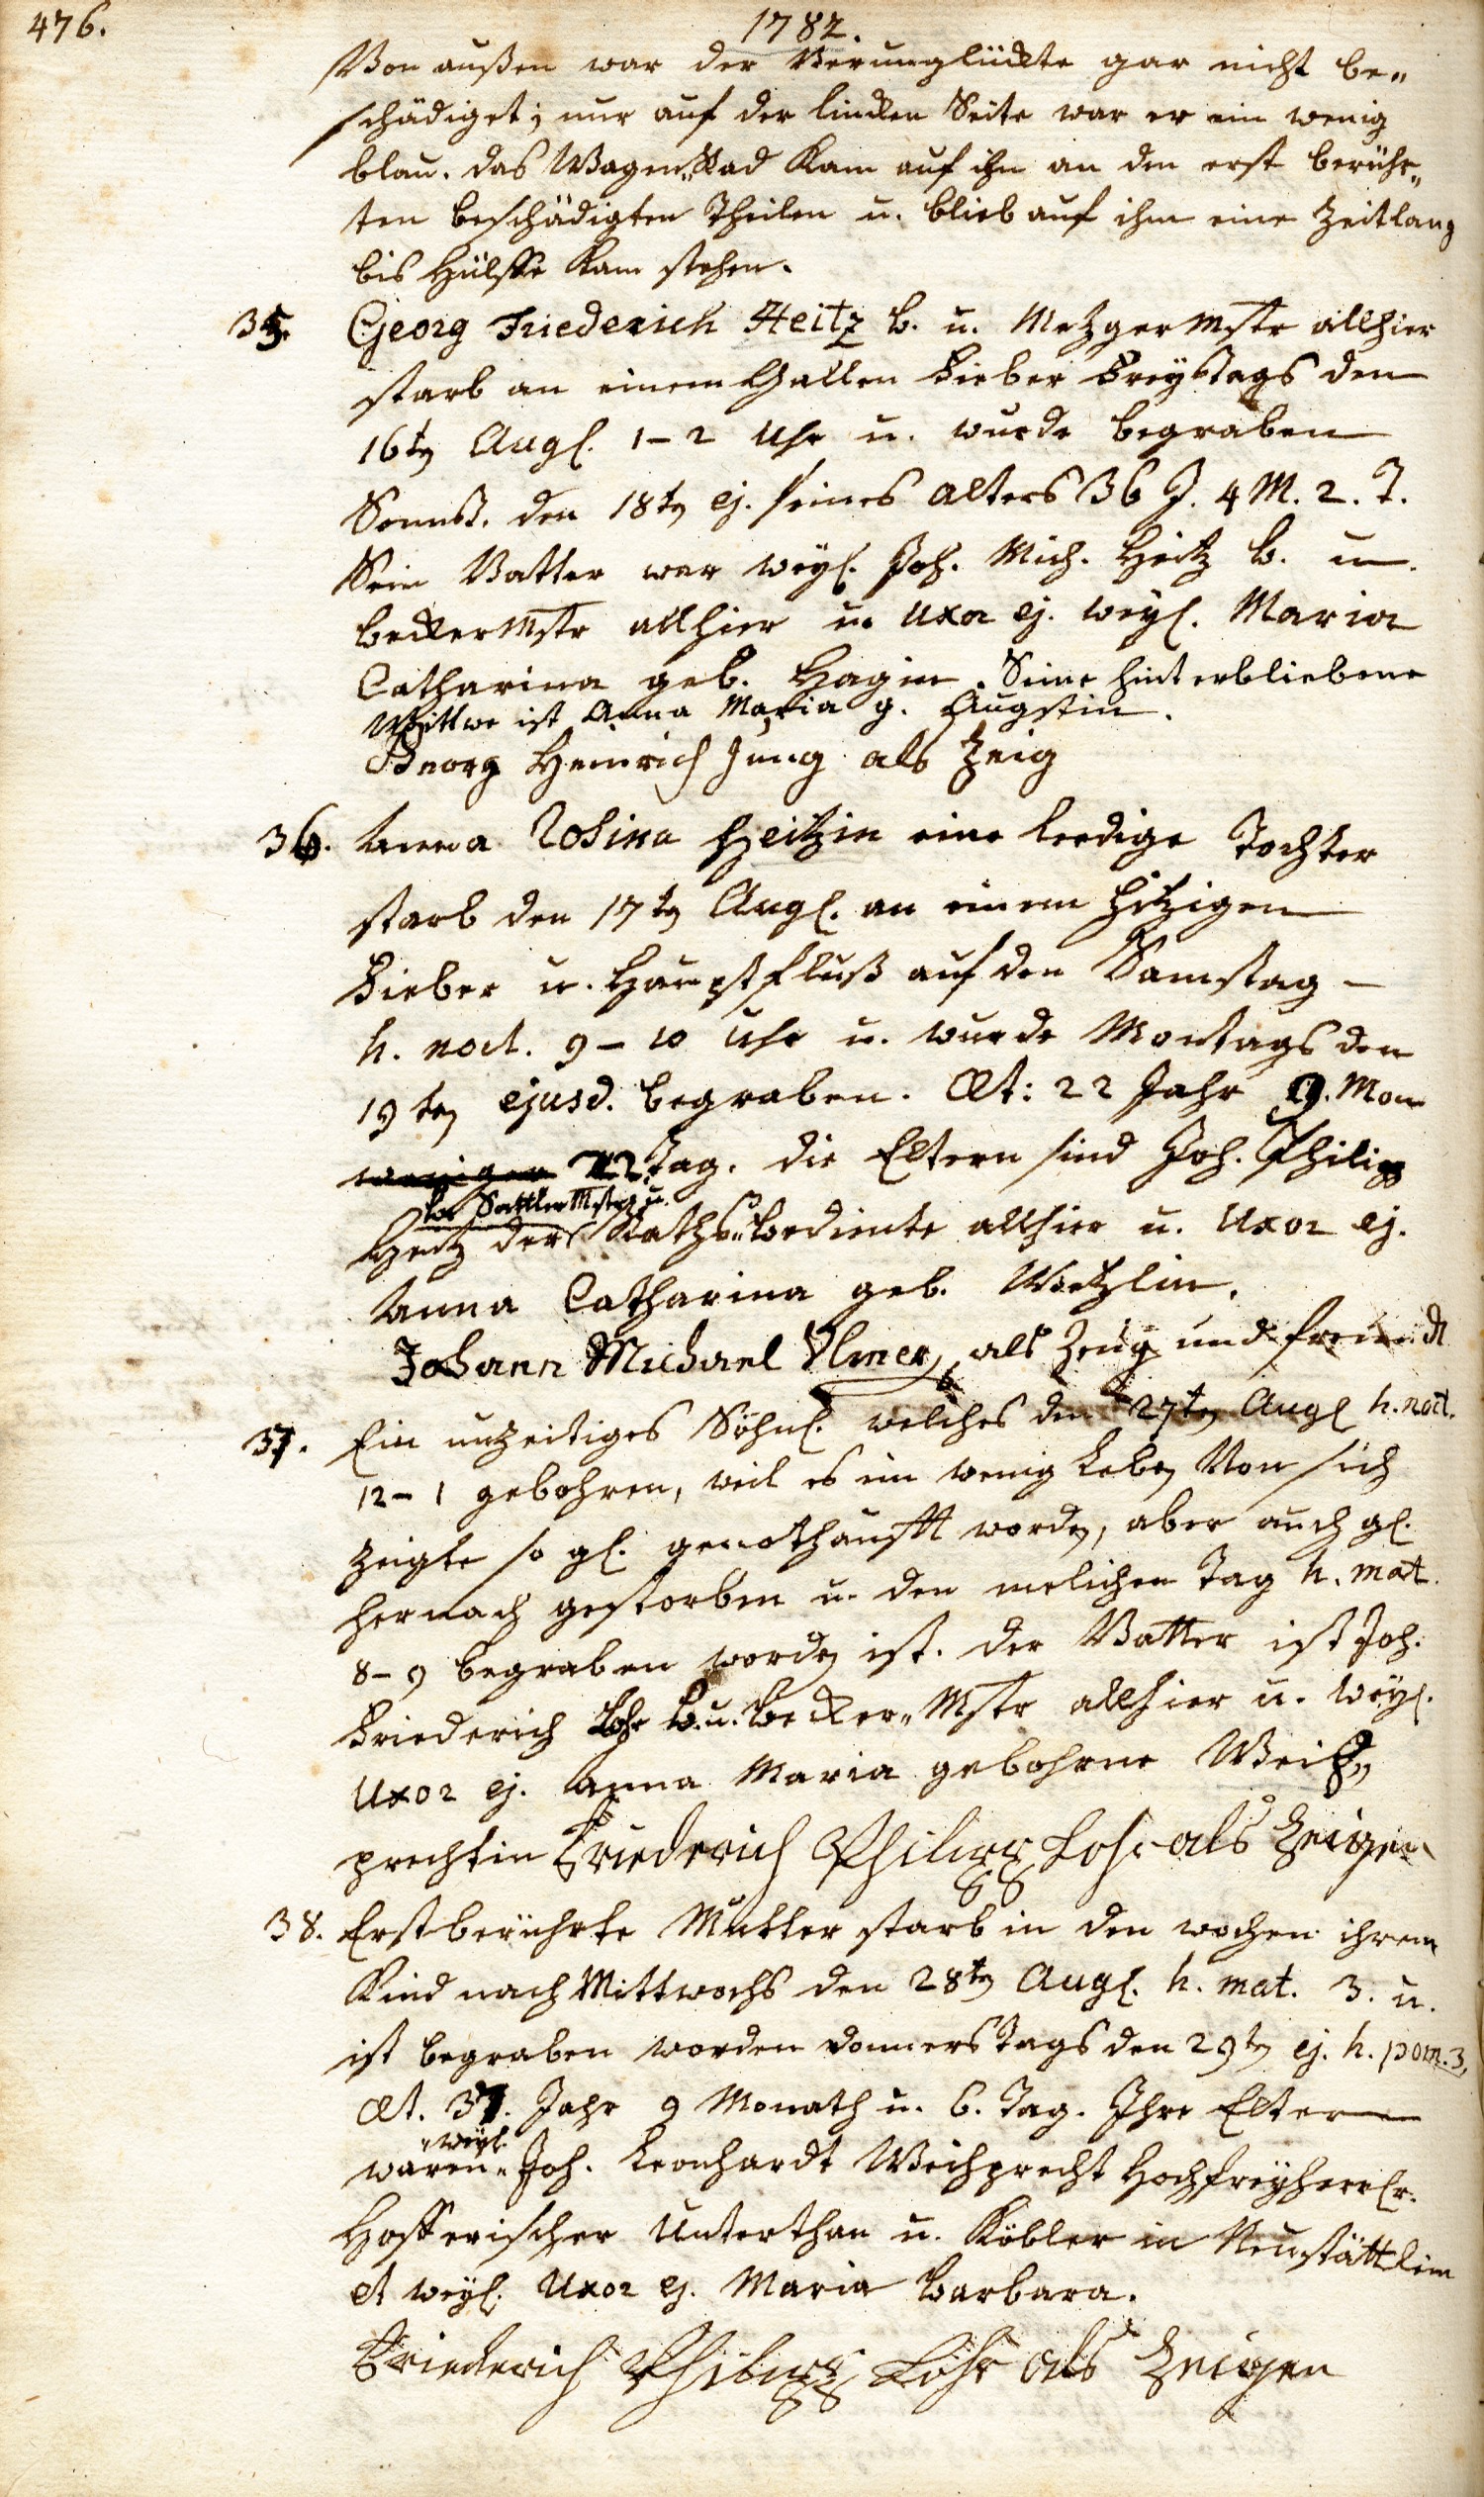 476.
1782.
Von außen war der Verunglückte gar nicht be„
schädiget; nur auf der lincken Seite war er ein wenig
blau. das Wagen„Rad kam auf ihn an den erst berühr„
ten beschädigten Theilen u. blieb auf ihm eine Zeitlang
bis Hülffe kam stehen.
35. Georg Friederich Heitz b. u. Metzger Mstr allhier
starb an einem Gallen Fieber Freytags den
16tn Augl. 1-2 Uhr u. wurde begraben
Sonnt. den 18tn ej. seines Alters 36 J. 4 M. 2. T.
Sein Vatter war weyl. Joh. Mich. Heitz b. u.
becker Mstr allhier u. Uxor ej. weyl. Maria
Catharina geb. Hagin. Seine hinterbliebene
Wittwe ist Anna Maria g. Augstin.
Georg Heinrich Jung als Zeig
36. Anna Rosina Heitzin eine ledige Tochter
starb den 17tn Augl. an einem hitzigen
Fieber u. Hauptfluß auf den Samstag
h. noct. 9-10 Uhr u. wurde Montags den
19tn ejusd. begraben. Æt: 22 Jahr 9. Mon
22 Tag. die Eltern sind Joh. Philipp
b. Sattler Mstr u.
Heitz der Raths„bediente allhier u. Uxor ej.
Anna Catharina geb. Wetzlin.
Johann Michael Ulmer, als Zeug und freundt
37. Ein unzeitiges Söhnl. welches den 27tn Augl h. noct.
12-1 gebohren, weil es ein wenig Leben von sich
zeigte so gl. genothtaufft worden, aber auch gl.
hernach gestorben u. den nelichen Tag h. mat.
8-9 begraben worden ist. der Vatter ist Joh.
Friederich Lohr b. u. Becker„Mstr allhier u. weyl.
Uxor ej. Anna Maria gebohrne Weiß„
prechtin Friederich Philipp Lohr als Zeigen
38. Erstberührte Mutter starb in den wochen ihrem
Kind nach Mittwochs den 28tn Augl. h. mat. 3. u.
ist begraben worden donnerstags den 29tn ej. h. pom. 3,
Æt. 37. Jahr 9 Monath u. 6. Tag. Ihre Eltern
„weyl.
waren„ Joh. Leonhardt Weihprecht Hochfreyherrl.
Hofferischer Unterthan u. Köbler in Neustättlein
et weyl. Uxor ej. Maria Barbara.
Friederich Philipp Lohr als Zeigen